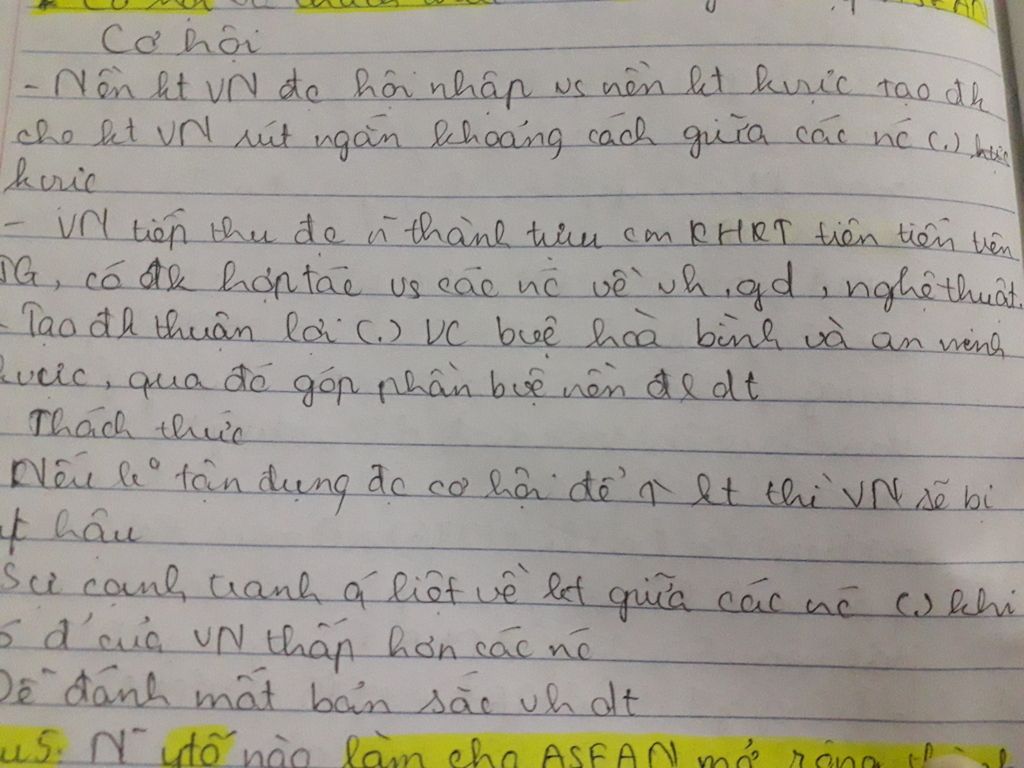 ASEAN
Cơ hội
- Nền kt VN đc hội nhập vs nền kt kvực tạo đk
cho kt VN rút ngắn khoảng cách giữa các nc (.)
kvực
- VN tiếp thu đc n~ thành tựu của KHKT tiên tiến trên
TG, có đk hợp tác vs các nc về vh, gd, nghệ thuật.
- Tạo đk thuận lợi (.) vc bvệ hoà bình và an ninh
kvực, qua đó góp phần bvệ nền đl dt
Thách thức
Nếu k° tận dụng đc cơ hội để ↑ kt thì VN sẽ bị
t hậu
Sự cạnh tranh q' liệt về kt giữa các nc (.) khi
đ' của VN thấp hơn các nc
Dễ đánh mất bản sắc vh dt
u5. N~ ytố nào làm cho ASEAN mở rộng